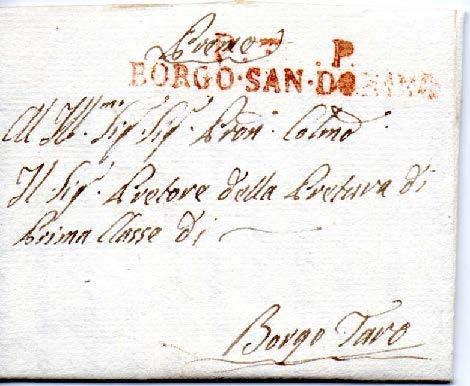 Preme
P. P.
BORGO·SAN·DONINO
Al Ill.mo Sig.r Sig.r Pron Colmo
Il Sig.r Pretore della Pretura di
Prima Classe di
Borgo Taro